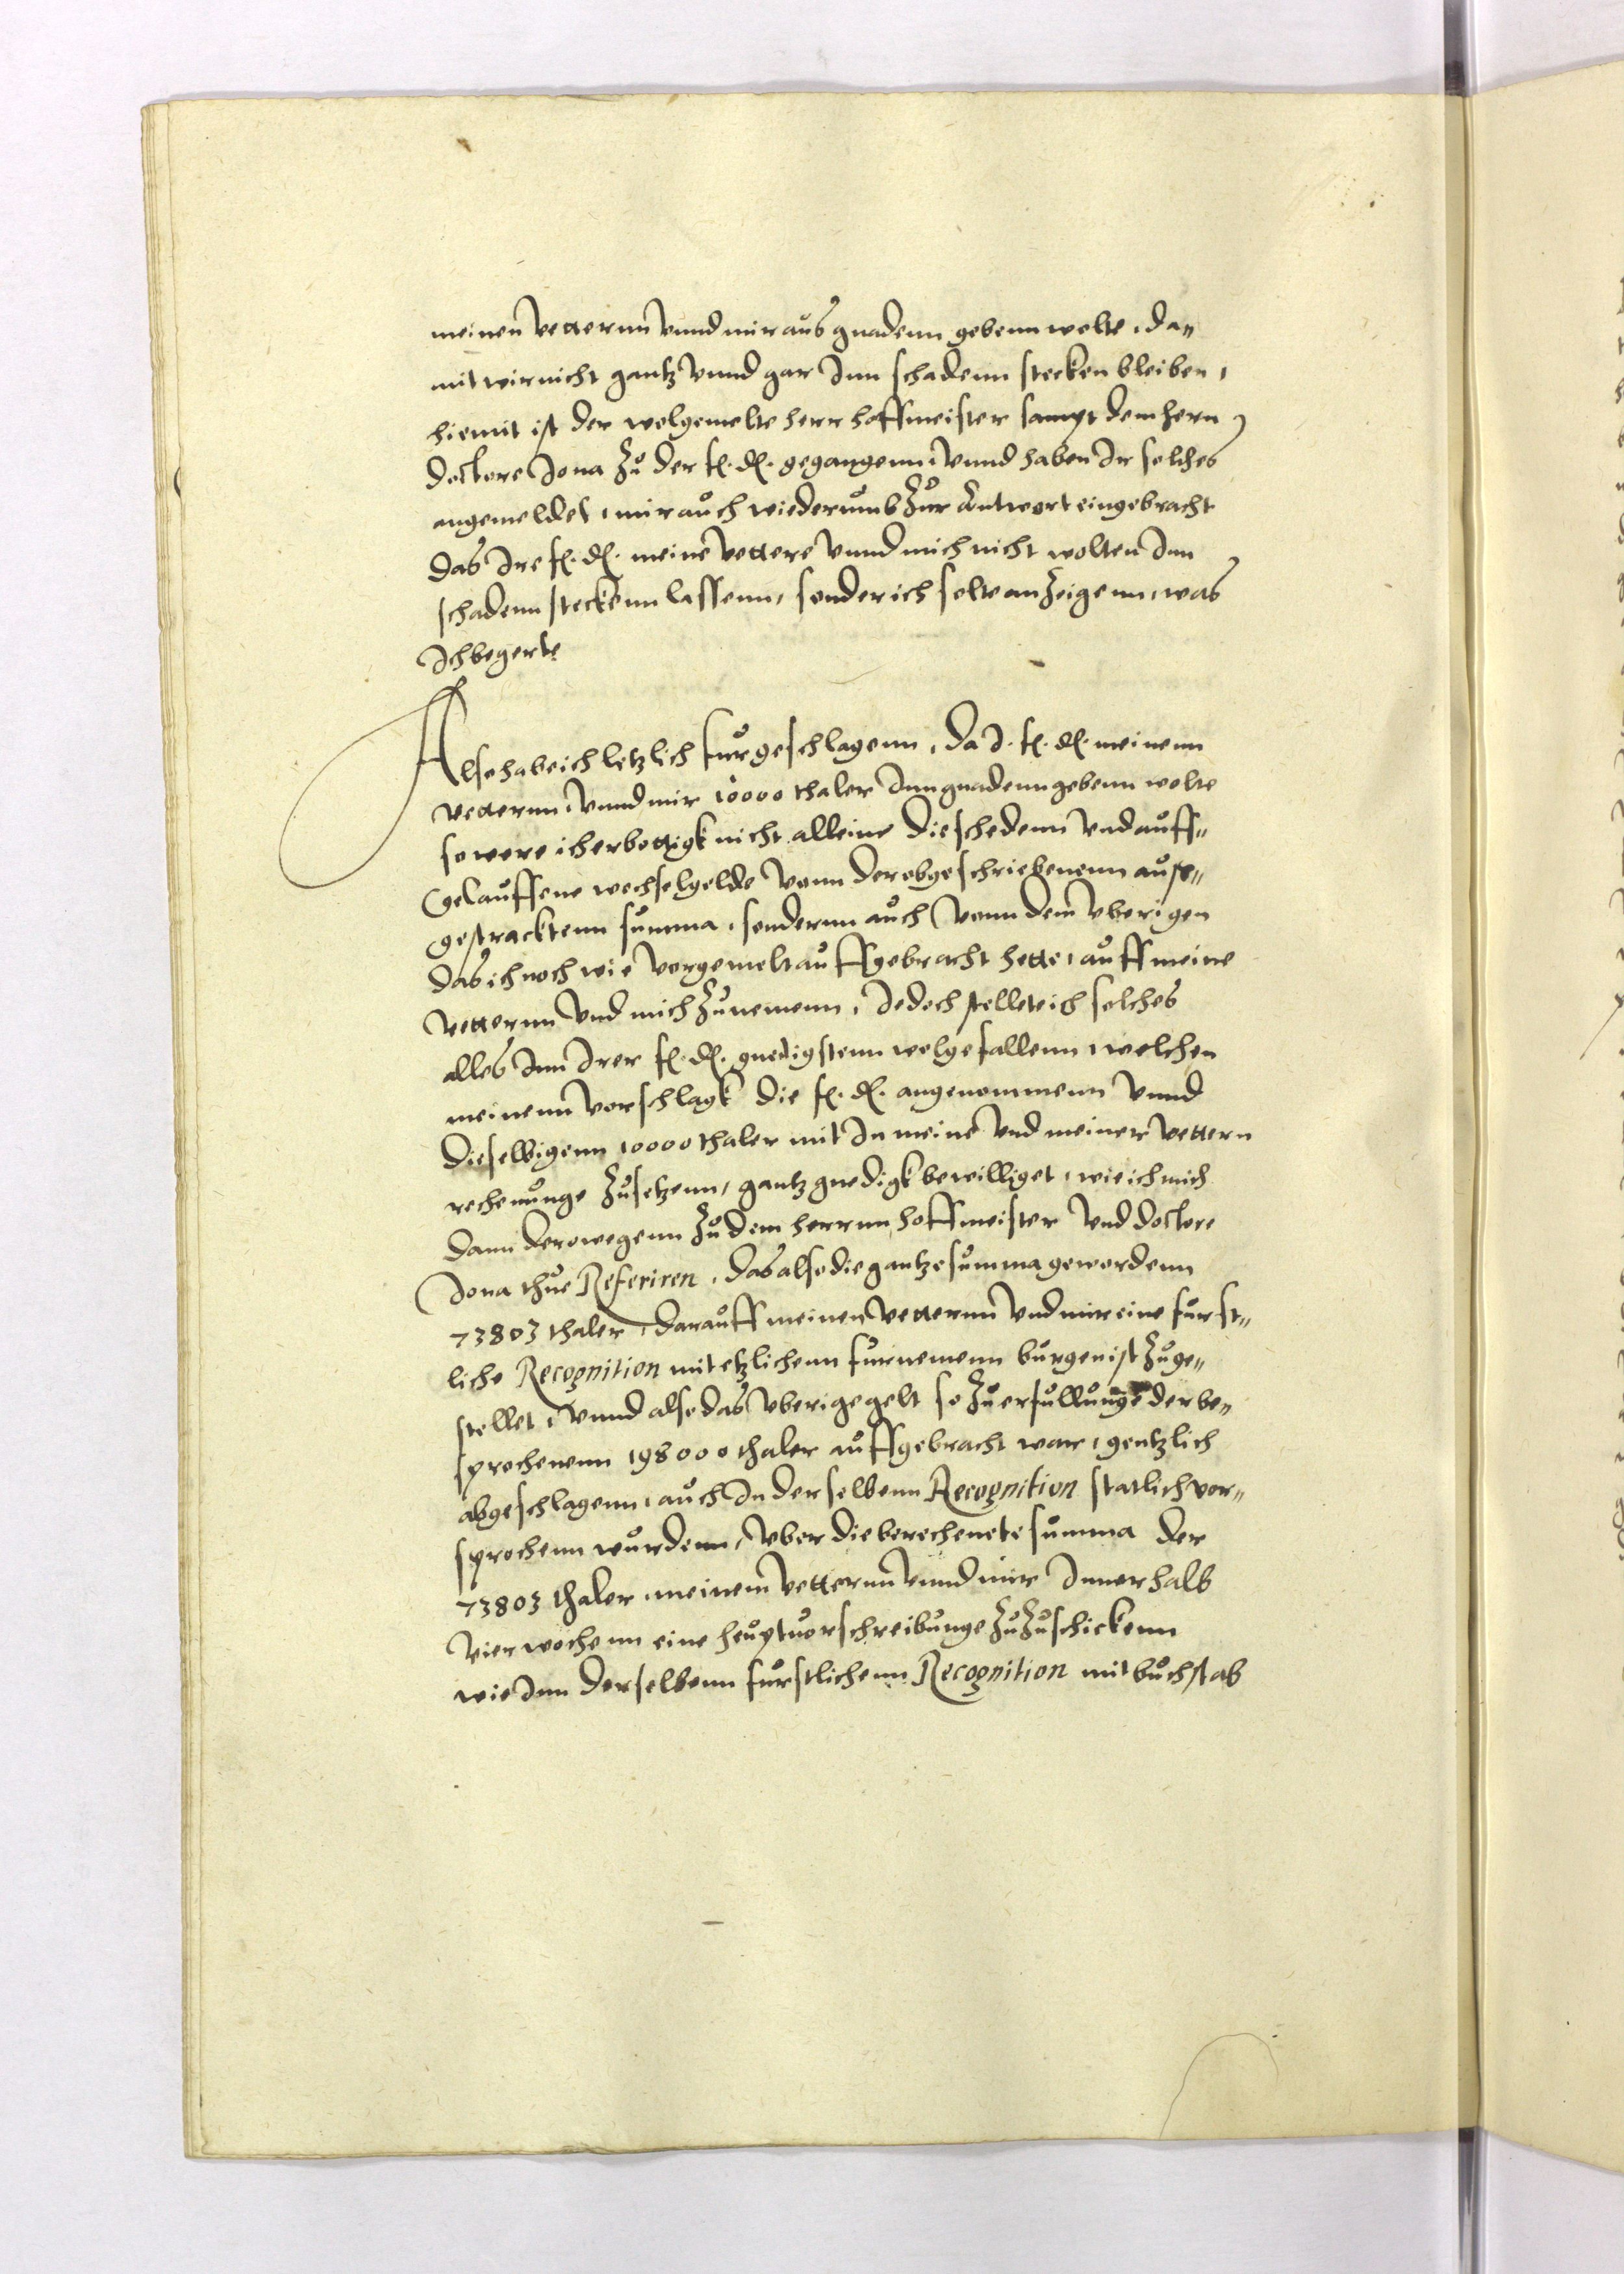 meinen vetternn vnnd mir aus gnadenn gebenn wolte, da-
mit wir nicht gantz vnnd gar Inn schadenn stecken bleiben,
hiemit ist der wolgemelte herr hoffmeister sampt dem hern
doctore Jona zu der f. d. gegangenn, vnnd haben Ir solches
angemeldet, mir auch wiederumb zur Antwort eingebracht
das Ire f. d. meine vettere vnnd mich nicht wolten Inn
schadenn steckenn lassenn, sonder ich solte anzeigenn, was
Ich begerte
Also habe ich letzlich furgeschlagenn, da I. f. d. meinenn
vetternn, vnnd mir 10000 thaler Inn gnadenn gebenn wolte
so were ich erbottigk nicht alleine die schedenn vnd auff-
gelauffene wechselgelde vonn der obgeschriebenenn ausse-
gestracktenn summa, sondernn auch vonn dem vberigen
das ich noch wie vorgemelt auffgebracht hette, auff meine
vetternn vnd mich zunemenn, Jedoch stellete ich solches
alles Inn Irer f. d. gnedigstenn wolgefallenn, welchen
meinenn vorschlagk die f. d. angenommenn vnnd
dieselbigenn 10000 thaler mit In meine vnd meiner vettern
rechenunge zusetzenn, gantz gnedigk bewilliget, wie ich mich
dann derowegenn zu dem herrnn hoffmeister vnd doctore
Jona thue Referiren, das also die gantze summa gewordenn
73803 thaler, darauff meinen vetternn vnd mir eine furst-
liche Recognition mit etzlichenn furnemenn burgen ist zuge-
stellet, vnnd also das vberige gelt so zu erfullunge der be-
sprochenenn 198000 thaler auffgebracht war, gentzlich
abgeschlagenn, auch In derselbenn Recognition statlich vor-
sprochenn wurdenn, vber die berechenete summa der
73803 thaler, meinem vetternn vnnd mir Innerhalb
vier wochenn eine heuptuorschreibunge zuzuschickenn
wie Inn derselbenn furstlichenn Recognition mit buchstab